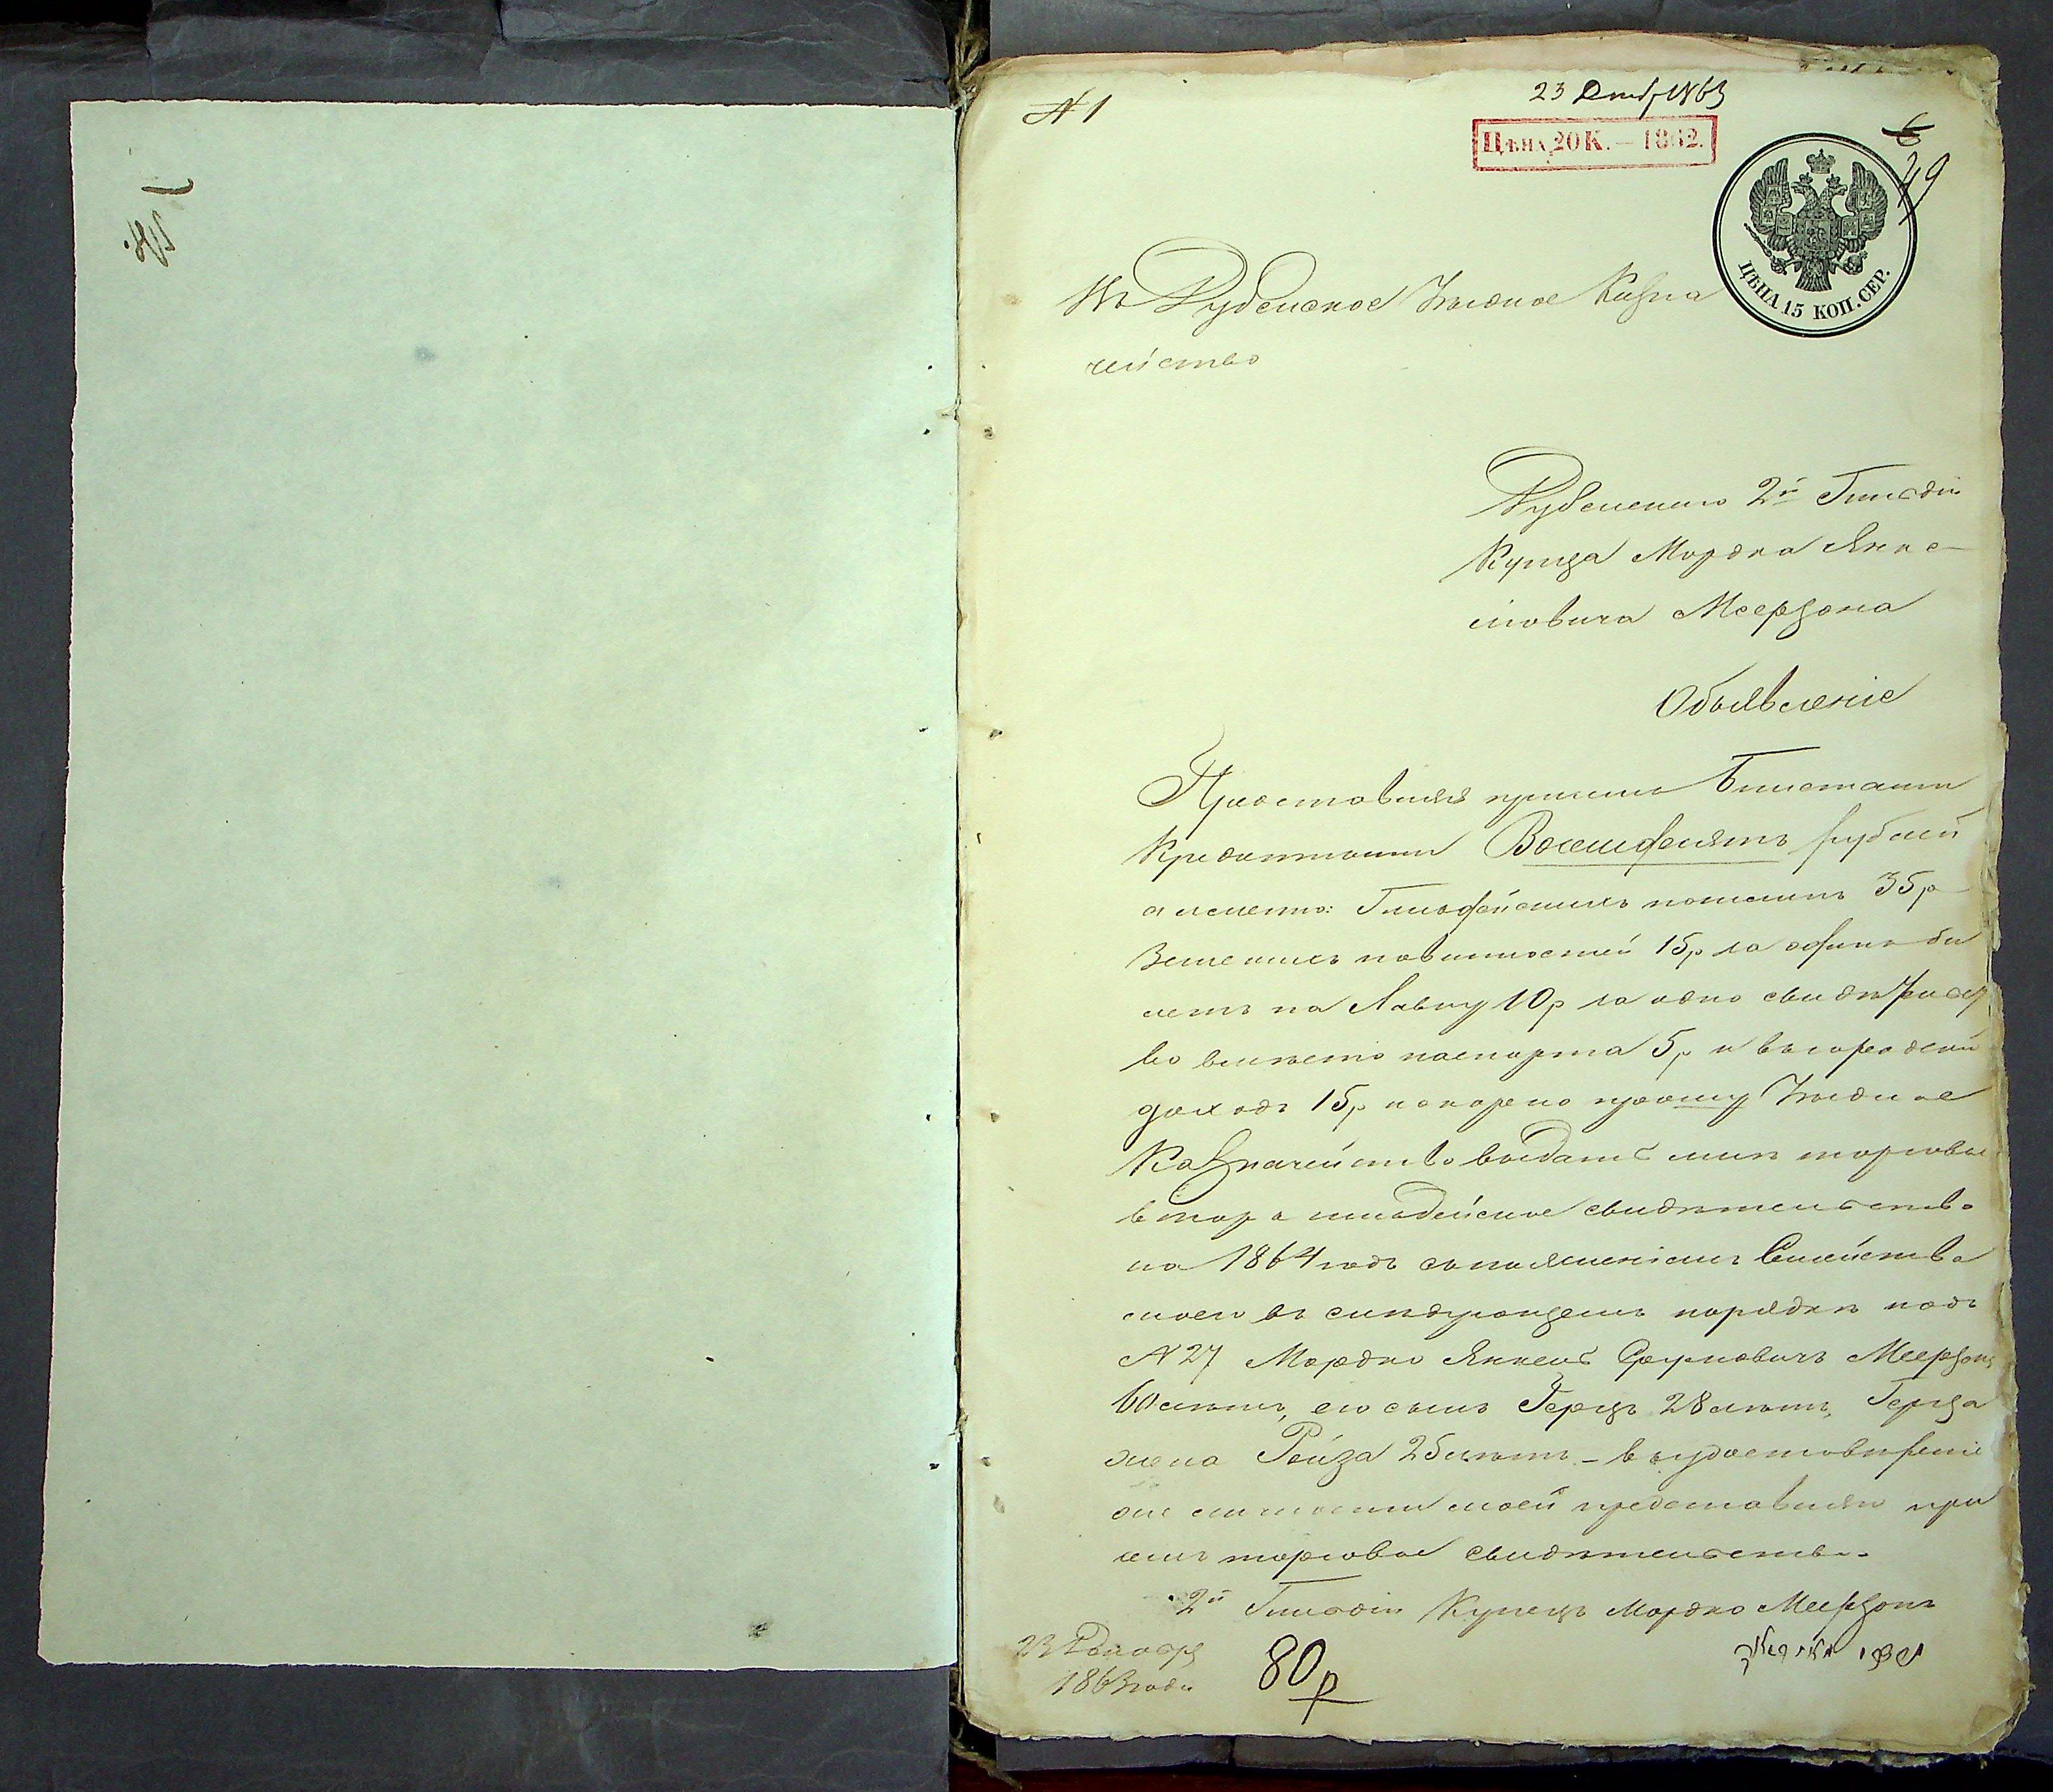 № 1
23 Декаб 1863
ЦѢНА 20 К. — 1862.
6
49
ЦѢНА 15 КОП. СЕР.
Въ Дубенское Уѣздное Казна
чейство
Дубенскаго 2й Гильдіи
Купца Мордка Янке
левича Меерзона
Объявленіе
Представляя присемъ билетами
Кредитными Восемдесятъ рублей
а именно: Гильдейскихъ пошлинъ 35р
Земскихъ повинностей 15р за одинъ би
летъ на Лавку 10р за одно свидѣтельст
во вмѣсто паспорта 5р и въ городской
доходъ 15р покорно прошу Уѣздное
Казначейство выдать мнѣ торговое
второгильдейское свидѣтельство
на 1864 годъ съ поясненіемъ Семейства
моего въ слѣдующемъ порядкѣ подъ
№ 27 Мордко Янкель Меерзонъ
60 лѣтъ, его сынъ Герцъ 28 лѣтъ, Герца
жена Рейза 25 лѣтъ — въ удостовѣреніе
же личности моей представляю при
семъ торговое свидѣтельство.
2й Гильдіи Купецъ Мордко Меерзонъ
23 Декабря
1863 года
80р